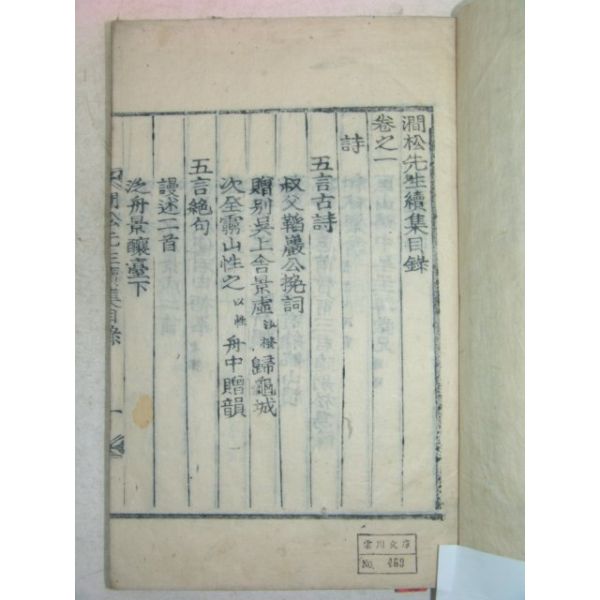 澗松先生續集目錄
卷之一
詩
五言古詩
叔父韜巖公挽詞
贈別吳上舍景虛 歸龜城
次至靈山性之 舟中贈韻
五言絶句
謾述二首
泛舟景釀臺下
澗松先生續集目錄
一
雲川文庫
No. 469